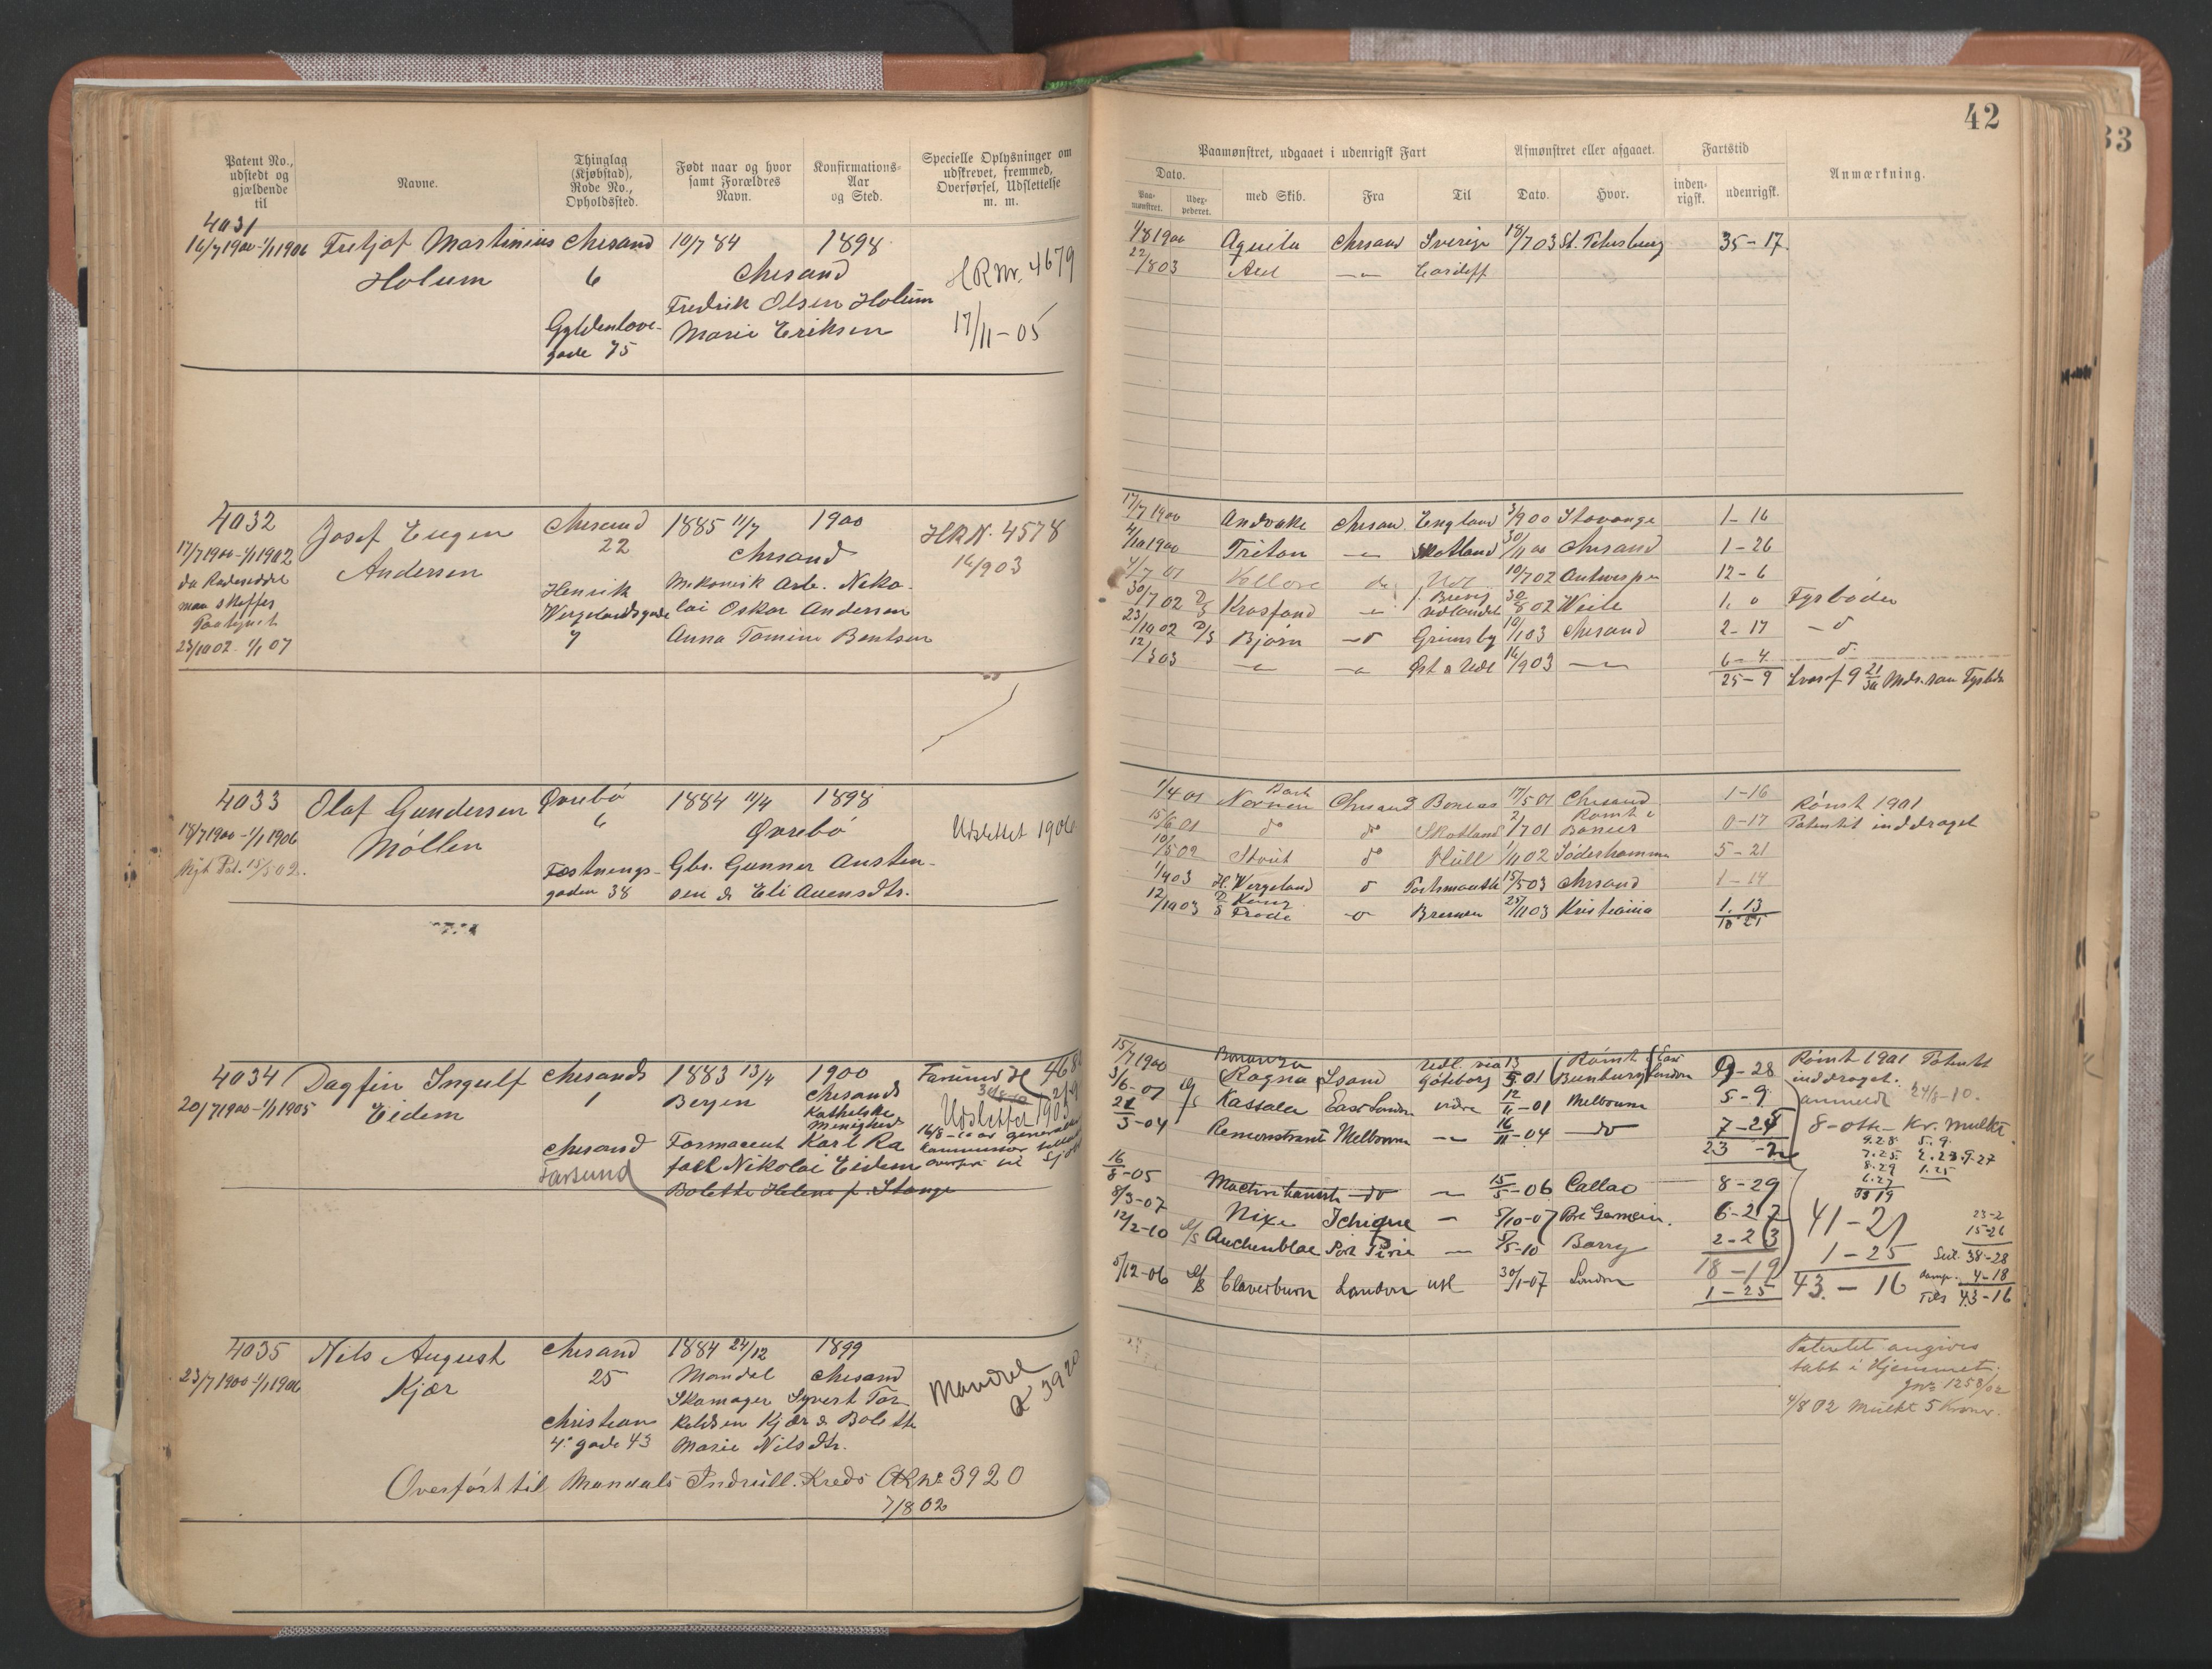 42
33
Patent No., udstedt og gjældende til
Navne.
Thinglag (Kjøbstad), Rode No., Opholdssted.
Født naar og hvor samt Forældres Navn.
Konfirmations-Aar og Sted.
Specielle Oplysninger om udskrevet, fremmed, Overførsel, Udslettelse m. m.
Paamønstret, udgaaet i udenrigsk Fart
Dato.
Paa-mønstret.
med Skib.
Fra
Til
Afmønstret eller afgaaet.
Dato.
Hvor.
Fartstid
inden-rigsk.
udenrigsk.
Anmærkning.
4031
16/7 1900-1/1 1906 Fritjof Martinius Chrsand 10/7 84 1898
Holum 6 Chrsand HRNr. 4679
Fredrik Olsen Holum
Gyldenløve- Marie Eriksen 17/11-05
gade 75
1/8 1900 Aquila Chrsand Sverige 18/7 03 St. Petersburg 35-17
22/8 03 Axel -"- Cardiff
4032 Josef Eugen Chrsand 1885 11/7 1900 HRN. 4578
17/7 1900-1/1 1902 Andersen 22 Chrsand 16/9 03
da Radeseddel Henrik Mekanisk Arb. Niko-
maa skaffes Wergelandsgade lai Oskar Andersen
Paategnet 7 Anna Tomine Bentsen
23/10 02 1/1 07
17/7 1900 Andvake Chrsan. England 3/9 00 Stavange 1-16
4/10 1900 Triton -"- Skotland 30/11 00 Chrsand 1-26
4/7 01 Vellore do Udl 10/7 02 Antwerpen 12-6
30/7 02 D/S Krosfond -"- Brevig udlandet 30/8 02 Weile 1. 0 Fyrbøder
23/10 02 D/S Bjørn -"- Grimsby 10/1 03 Chrsand 2-17 -d
12/3 03 -"- -"- Øst a Udl 16/9 03 -"- 6-4 d.
25-9 hvoraf 9 21/30 Mdr. som Fyrbøder
4033 Olaf Gundersen Øvrebø 1884 11/4 1898
18/7 1900-1/1 1906 Møllen 6 Øvrebø Udslettet 1906
Nyt Pat. 15/5 02. Fæstnings- Gbr. Gunner Austen-
gaden 38 sen & Eli Auensdtr.
1/4 01 Bark Nornen Chrsand Boness 17/5 01 Chrsand 1-16 Rømt 1901
15/6 01 do do Skotland 2/7 01 Rømt i Boness 0-17 Patentet inddraget
10/5 02 Strüt do Hull 1/11 02 Søderhamn 5-21
1/4 03 H. Wergeland d Portsmouth 15/5 03 Chrsand 1-14
12/10 03 D/S Kong Frode -"- Bremen 25/11 03 Kristiania 1. 13
10 21
4034 Dagfin Ingulf Chrsands 1883 13/4 1900 Farsund
20/7 1900-1/1 1905 Eidem 1 Bergen Chrsands Udslettet 1905
Katholske
Menighed
Chrsand Farmaceut Karl Ra
Farsund fael Nikolai Eidem
Bolette Helene f. Stange
15/7 1900 Bonanza Ragna Lsand Udl. via Göteborg 13/5 01 Rømt Bunbury East London 9-28 Rømt 1901 Patentet
3/6-01 Kassala East London videre 12/11-01 Melbourne 5-9 inddraget.
anmeldt 24/8-10.
21/3-04 Remonstrant Melbourne -"- 16/11-04 -do 7-25 8-otte- Kr. mulkt
23-2
9.28 5.9
7.25 2.23 9.27
8.29 1.25
6.27
16/8-05 -do -"- 15/5-06 Callao 8-29
8/3-07 Nixe Ichique - 5/10-07 Pre Germein. 6-27 41-21
12/2-10 Auchenblae Port Pirie - 5/5-10 Barry 2-23 1-25
18-19 43-16
5/12-06 Claverburn London udl 30/1-07 London 1-25
23-2
15-26
Seil. 38-28
damp. 4-18
Tils 43-16
4035 Nils August Chrsand 1884 24/12 1899
23/7 1900-1/1 1906 Kjær 25 Mandal Chrsand Mandal
Skomager Syvert Tor- 3920
Christian keldsen Kjær & Bolette
4. gade 43 Marie Nilsdtr.
Overført til Mandals Indrull. Kreds ARNo 3920
7/8 02
Patentet angives
tabt i Hjemmet.
Jno 1258/02
4/8 02 Mulkt 5 Kroner.